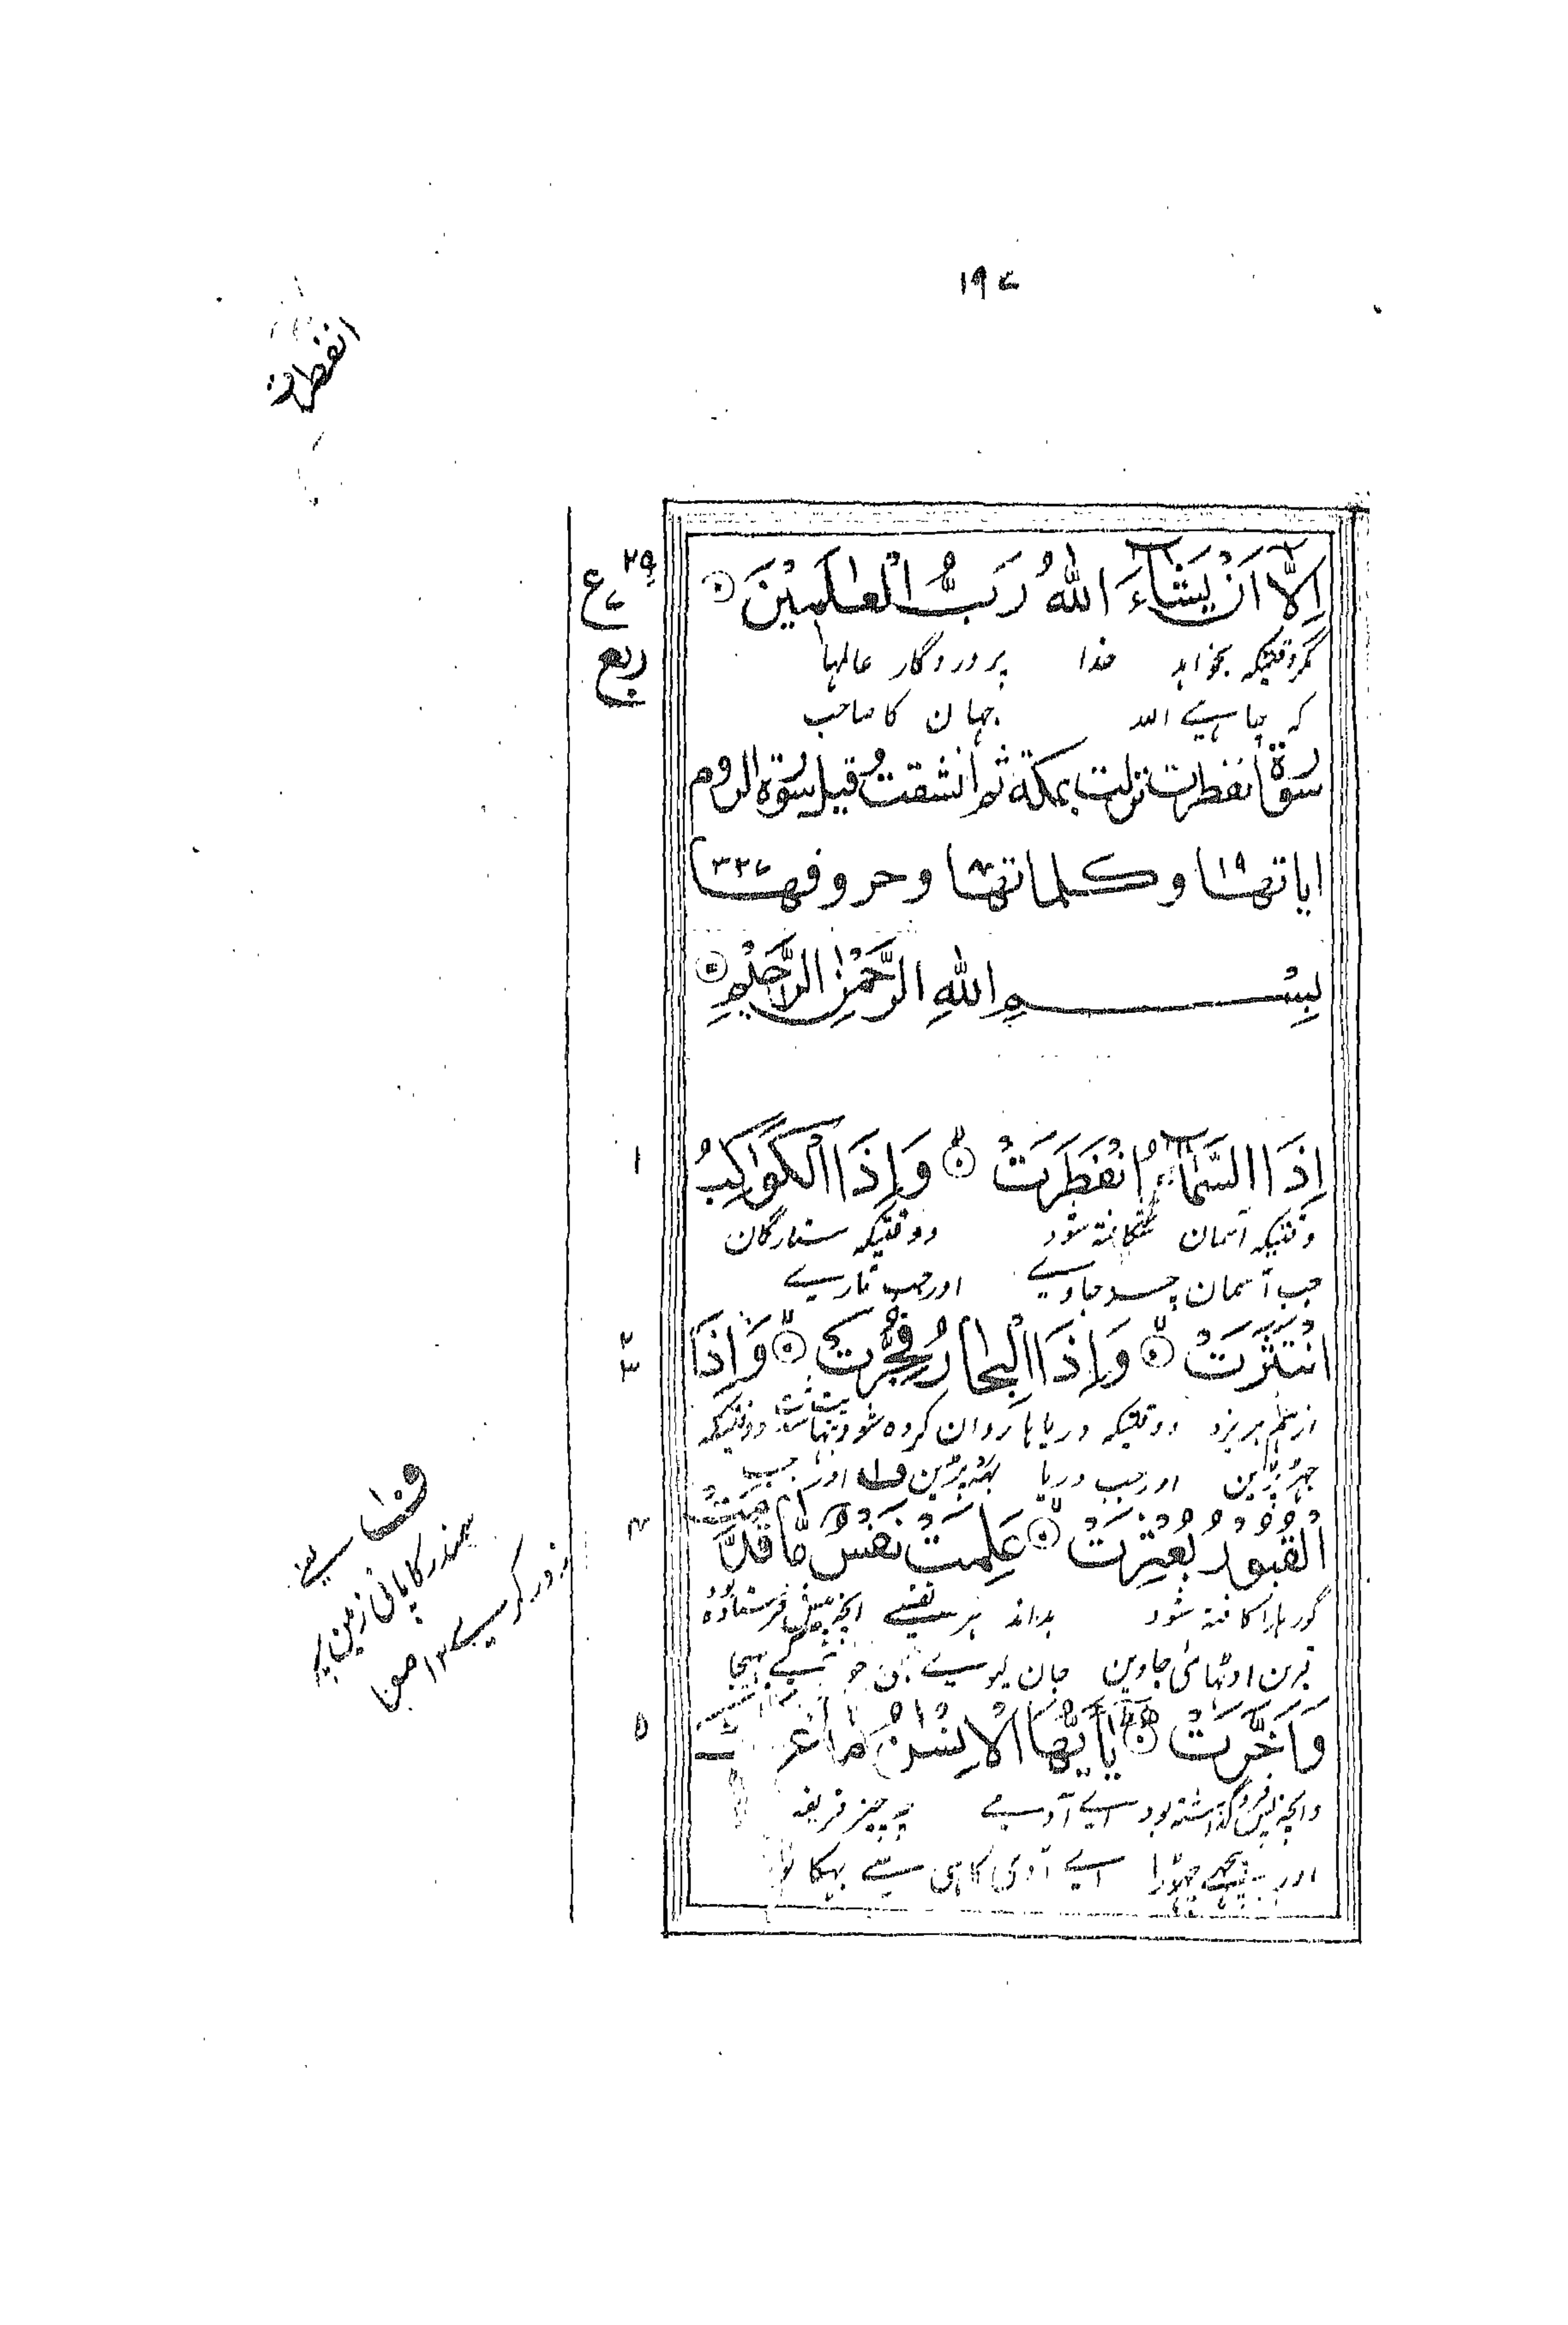 ۱۹۷
انفطرت
اِلَّا اَنْ يَّشَآءَ اللّٰهُ رَبُّ الْعٰلَمِيْنَ
۲۹
ع
ربع
مگر وقتیکہ بخواہد خدا پروردگار عالمہا
کہ چاہے اللہ جہان کا صاحب
سورة انفطرت نزلت بمكة ثم انشقت قيل سورة الروم
اياتها ۱۹ وكلماتها ۸۰ وحروفها ۳۳۷
بِسْمِ اللّٰهِ الرَّحْمٰنِ الرَّحِيْمِ
۱
اِذَا السَّمَآءُ انْفَطَرَتْ وَاِذَا الْكَوَاكِبُ
وقتیکہ آسمان شگافتہ شود ووقتیکہ ستارگان
جب آسمان چر جاوے اور جب تارے
۲
۳
انْتَثَرَتْ وَاِذَا الْبِحَارُ فُجِّرَتْ وَاِذَا
از ہم بریزد ووقتیکہ دریاہا روان کردہ شود ووقتیکہ
جھڑ پڑین اور جب دریا بہہ پڑین ف۱ اور جب
۴
الْقُبُوْرُ بُعْثِرَتْ عَلِمَتْ نَفْسٌ مَّا قَدَّمَتْ
گورہا شگافتہ شود بداند ہر نفسے آنچہ پیش فرستادہ
قبرن اوٹھائی جاوین جان لیوے جی جو آگے بھیجا
۵
وَاَخَّرَتْ يٰاَيُّهَا الْاِنْسَانُ مَا غَرَّكَ
وآنچہ پس گذاشتہ بود اے آدمی چہ چیز فریفتہ
اور پیچھے چھوڑا اے آدمی کاہے سے بہکا تو
ف۱ یعنے
سمندر کا پانی زمین پر
زور کرے ۱۲ منہ